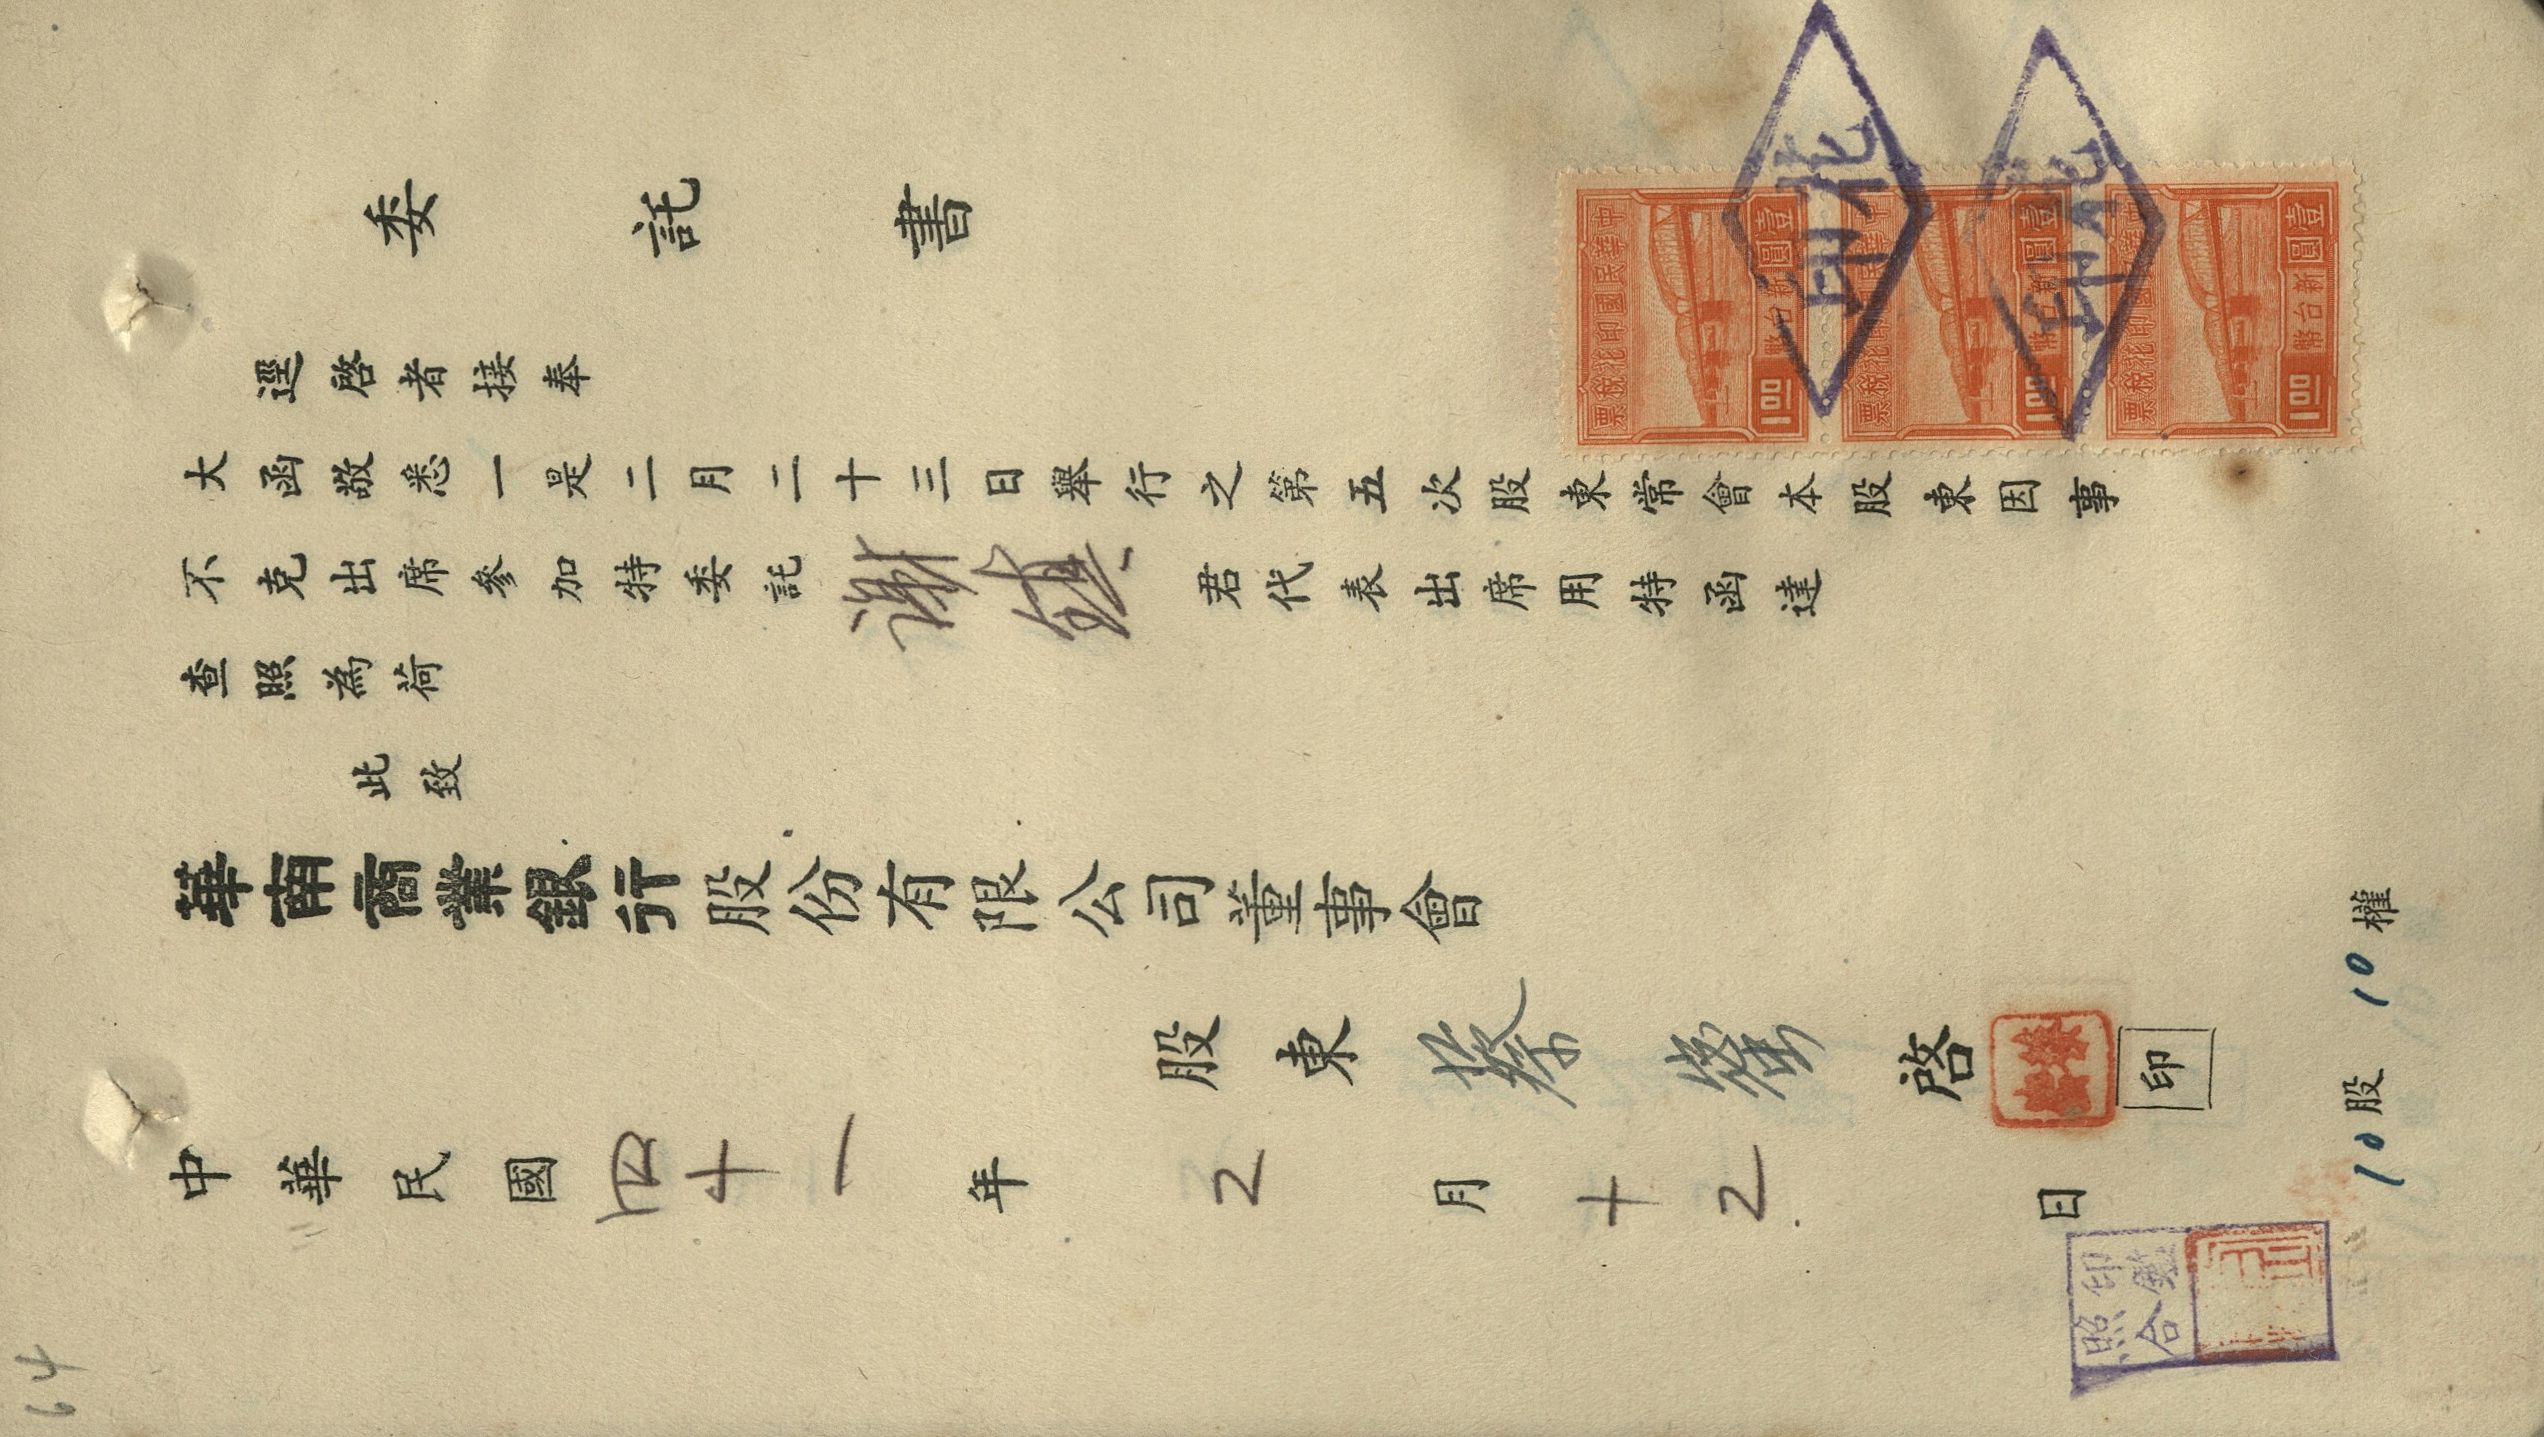 委託書
逕啓者接奉
大函敬悉一是二月二十三日舉行之第五次股東常會本股東因事
不克出席參加特委託謝鎮君代表出席用特函達
查照為荷
此致
華南商業銀行股份有限公司董事會
股東蔡 啓 印
中華民國四十一年2月十2日
10股10權
中華民國印花稅票
壹圓
新台幣
1.00
中華民國印花稅票
壹圓
新台幣
1.00
中華民國印花稅票
壹圓
新台幣
1.00
花
印
花
印
印鑑
照合
64